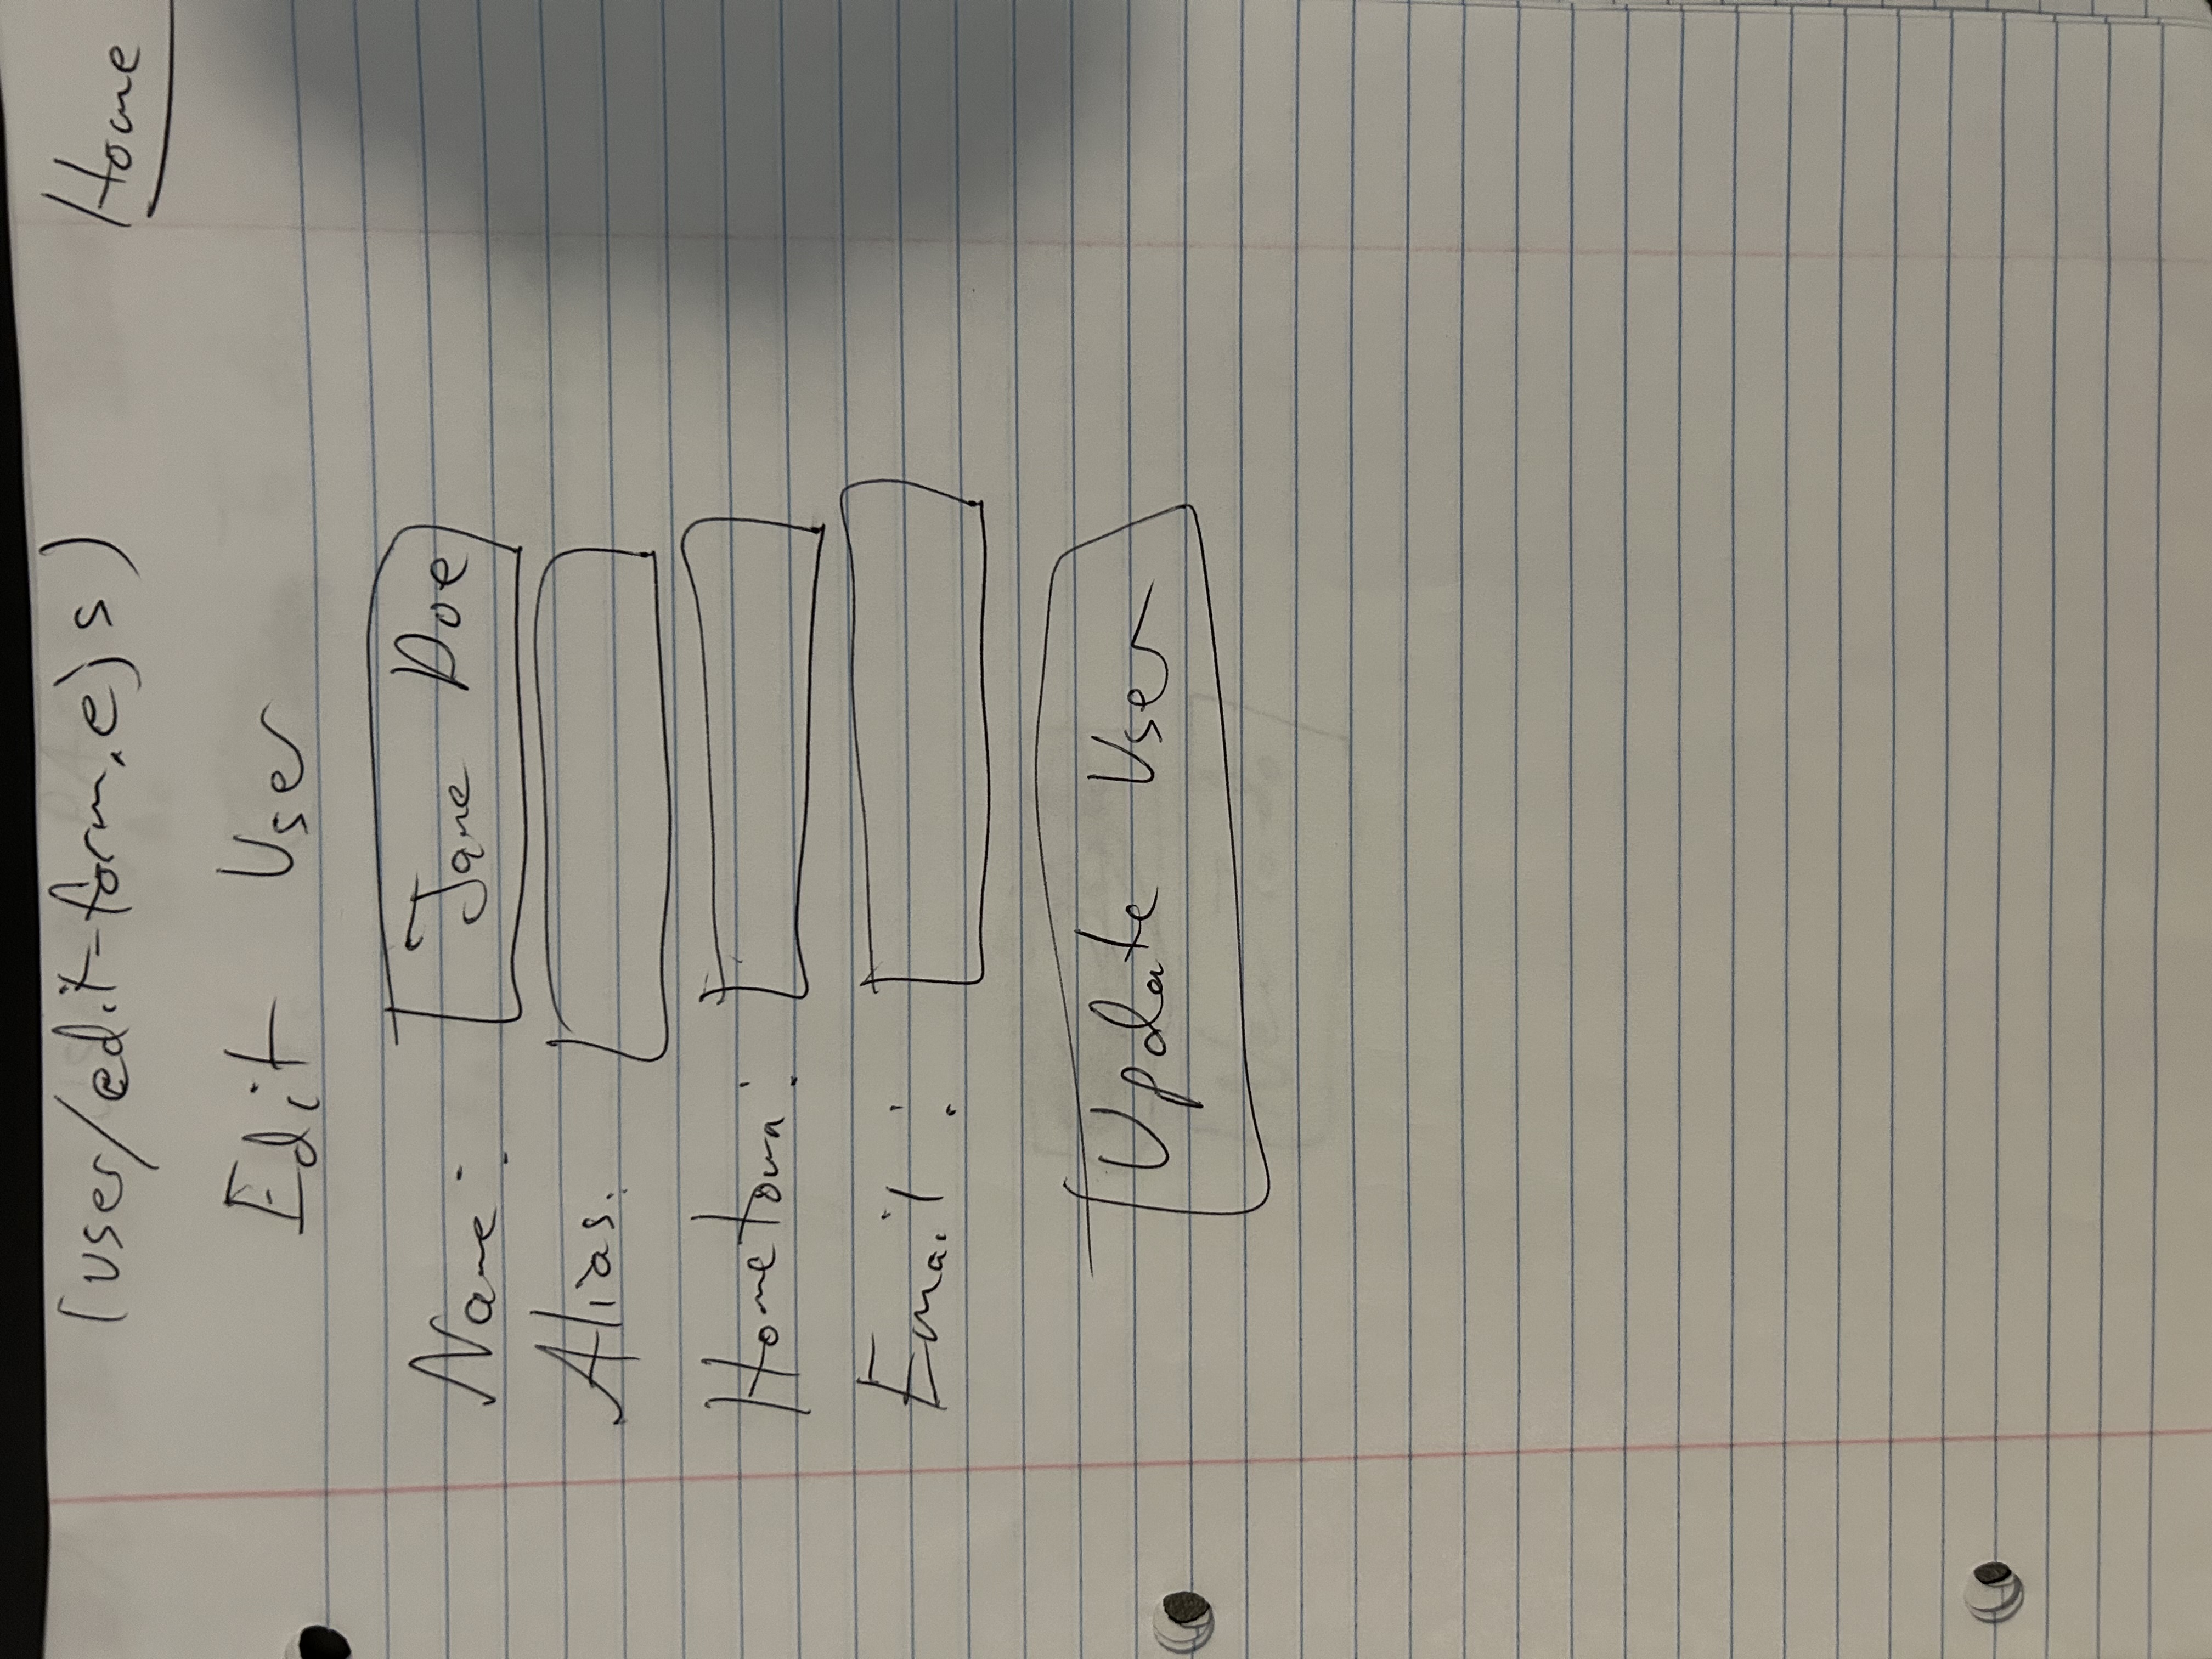 (user/edit-form.ejs) Home
Edit User
Name: Jane Doe
Alias:
Hometown:
Email:
Update User